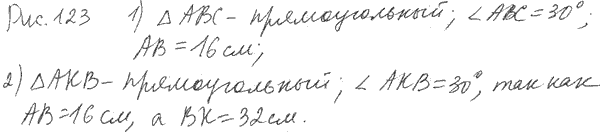 Рис. 123 1) △ ABC - прямоугольный; ∠ ABC = 30°;
AB = 16 см;
2) △ AKB - прямоугольный; ∠ AKB = 30°, так как
AB = 16 см, а BK = 32 см.